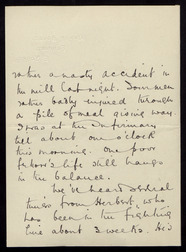 rather a nasty accident in
the mill last night. Four men
rather badly injured through
a pile of meal giving way.
I was at the Infirmary
till about one o'clock
this morning. One poor
fellow's life still hangs
in the balance.
We've heard several
times from Herbert, who
has been in the fighting
line about 3 weeks. He's